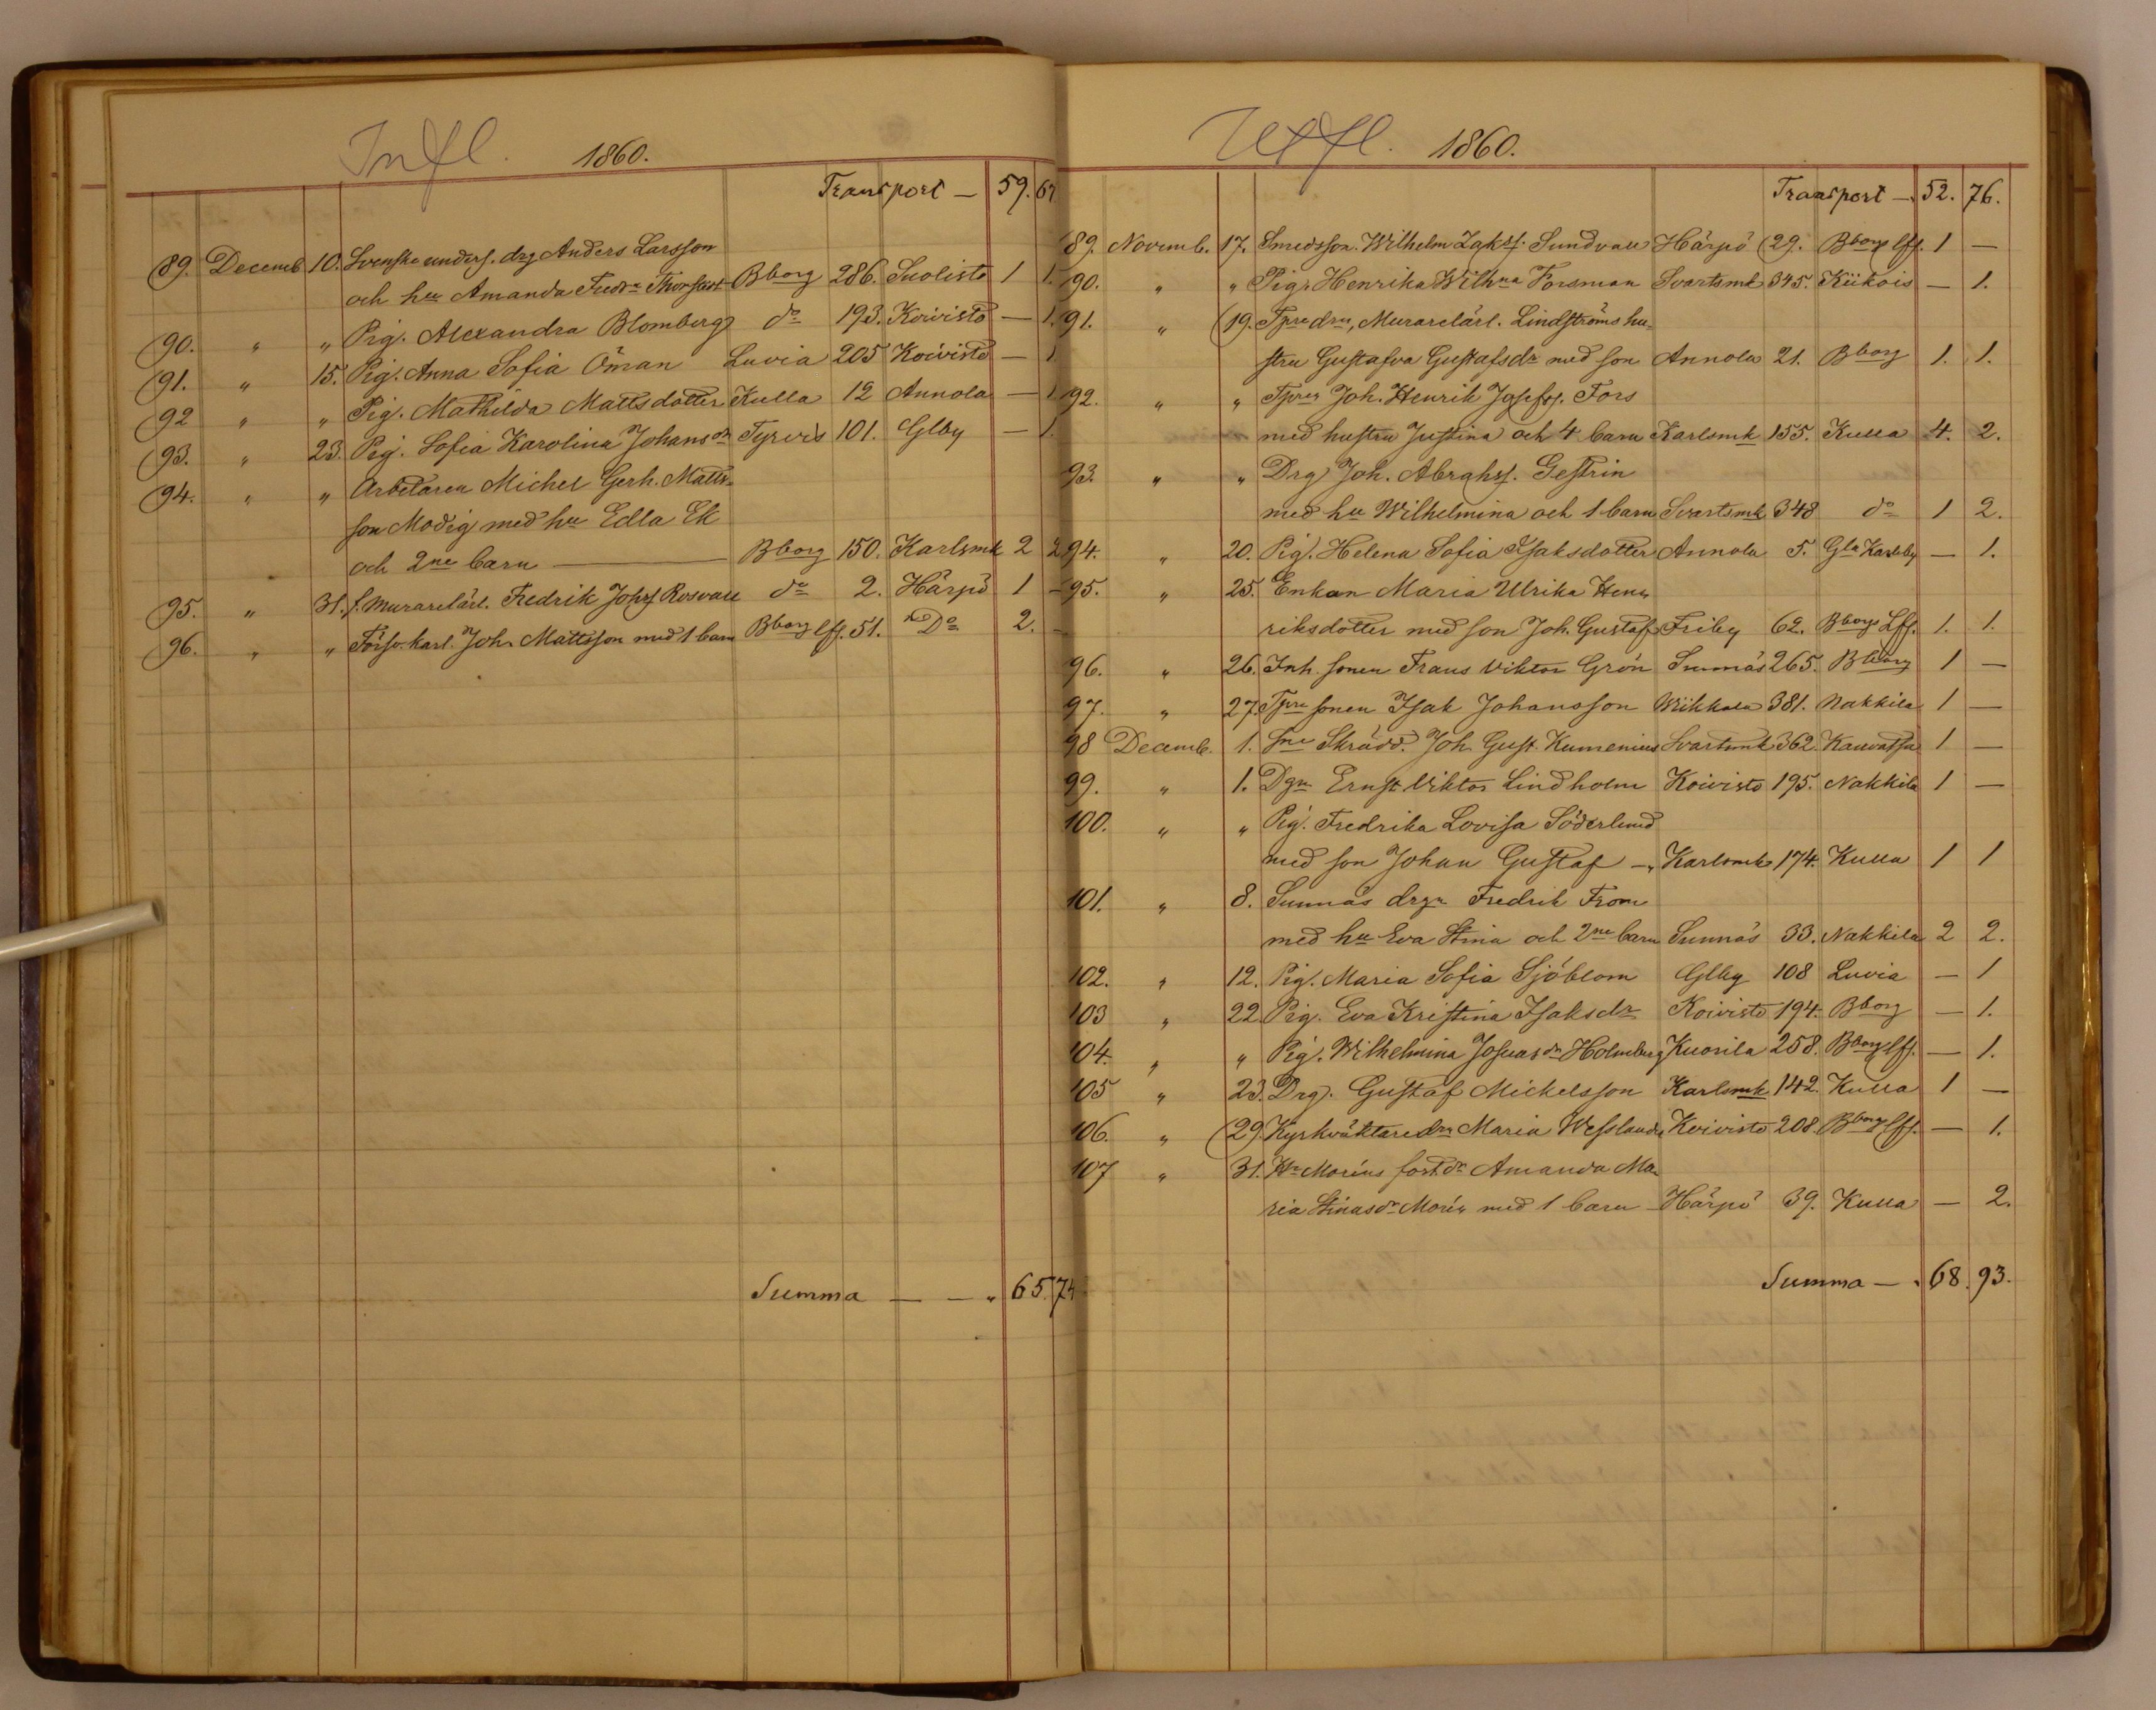 Infl. 1860.
Transport — 59. 67
89. Decemb 10. Svenske unders. drg Anders Larsson
och hu Amanda Fredra Bborg 286. Suolisto 1 1.
90. " " Pig. Alexandra Blomberg do 193. Koivisto — 1.
91. " 15. Pig. Anna Sofia Öman Luvia 205 Koivisto — 1
92 " " Pig. Mathilda Mattsdotter Kulla 12 Annola — 1
93. " 23. Pig. Sofia Karolina Johansdr Tyrvis 101. Glby — 1.
94. " " Arbetaren Michel Gerh. Matts-
son Modig med hu Edla Ek
och 2ne barn — Bborg 150. Karlsmk 2 2
95. " 31. f. Murarelärl. Fredrik Johsf Rosvall do 2. Härpö 1 —
96. " " Försv. karl. Joh. Mattsson med 1 barn Bborg lff. 51. Do 2. —
Summa — — " 65. 74
Utfl. 1860.
Transport — 52. 76.
89. Novemb. 17. Smedsson. Wilhelm Zaksf. Sundvall Härpö 29. Bborgs lff. 1 —
90. " " Pig. Henrika Wilhna Forsman Svartsmk 345. Kiikois — 1.
91. " 19. Tpredrn, Murarelärl. Lindströms hu-
stru Gustafva Gustafsdr med son Annola 21. Bborg 1. 1.
92. " " Tpren Joh. Henrik Josefss. Fors
med hustru Justina och 4 barn Karlsmk 155. Kulla 4. 2.
93. " " Drg Joh. Abrahsf. Gestrin
med hu Wilhelmina och 1 barn Svartsmk 348 do 1 2.
94. " 20. Pig. Helena Sofia Isaksdotter Annola 5. Gla Karleby — 1.
95. " 25. Enkan Maria Ulrika Hen-
riksdotter med son Joh. Gustaf Friby 62. Bborgs Lff. 1. 1.
96. " 26. Inh. sonen Frans Viktor Grön Sunnäs 265. Bborg 1 —
97. " 27. Tpre sonen Isak Johansson Wiikkala 381. Nakkila 1 —
98 Decemb. 1. Sne Skrädd. Joh. Gust. Kumenius Svartsmk 362. Kauvatsa 1 —
99. " 1. Dgn Ernst Viktor Lindholm Koivisto 195. Nakkila 1 —
100. " " Pig. Fredrika Lovisa Söderlund
med son Johan Gustaf — " Karlsmk 174. Kulla 1 1
101. " 8. Sunnäs drgn Fredrik From
med hu Eva Stina och 2ne barn Sunnäs 33. Nakkila 2 2.
102. " 12. Pig. Maria Sofia Sjöblom Glby 108 Luvia — 1
103 " 22. Pig. Eva Kristina Isaksdr Koivisto 194. Bborg — 1.
104. " " Pig. Wilhelmina Josuasdr Holmberg Kuorila 258. Bborgs lff. — 1.
105 " 23. Drg. Gustaf Mickelsson Karlsmk 142. Kulla 1 —
106. " 29. Kyrkväktaredrn Maria Koivisto 208. Bborgs lff. — 1.
107 " 31. Moréns fost.dr Amanda Ma-
ria Stinasdr Morén med 1 barn Härpö 39. Kulla — 2.
Summa — " 68. 93.